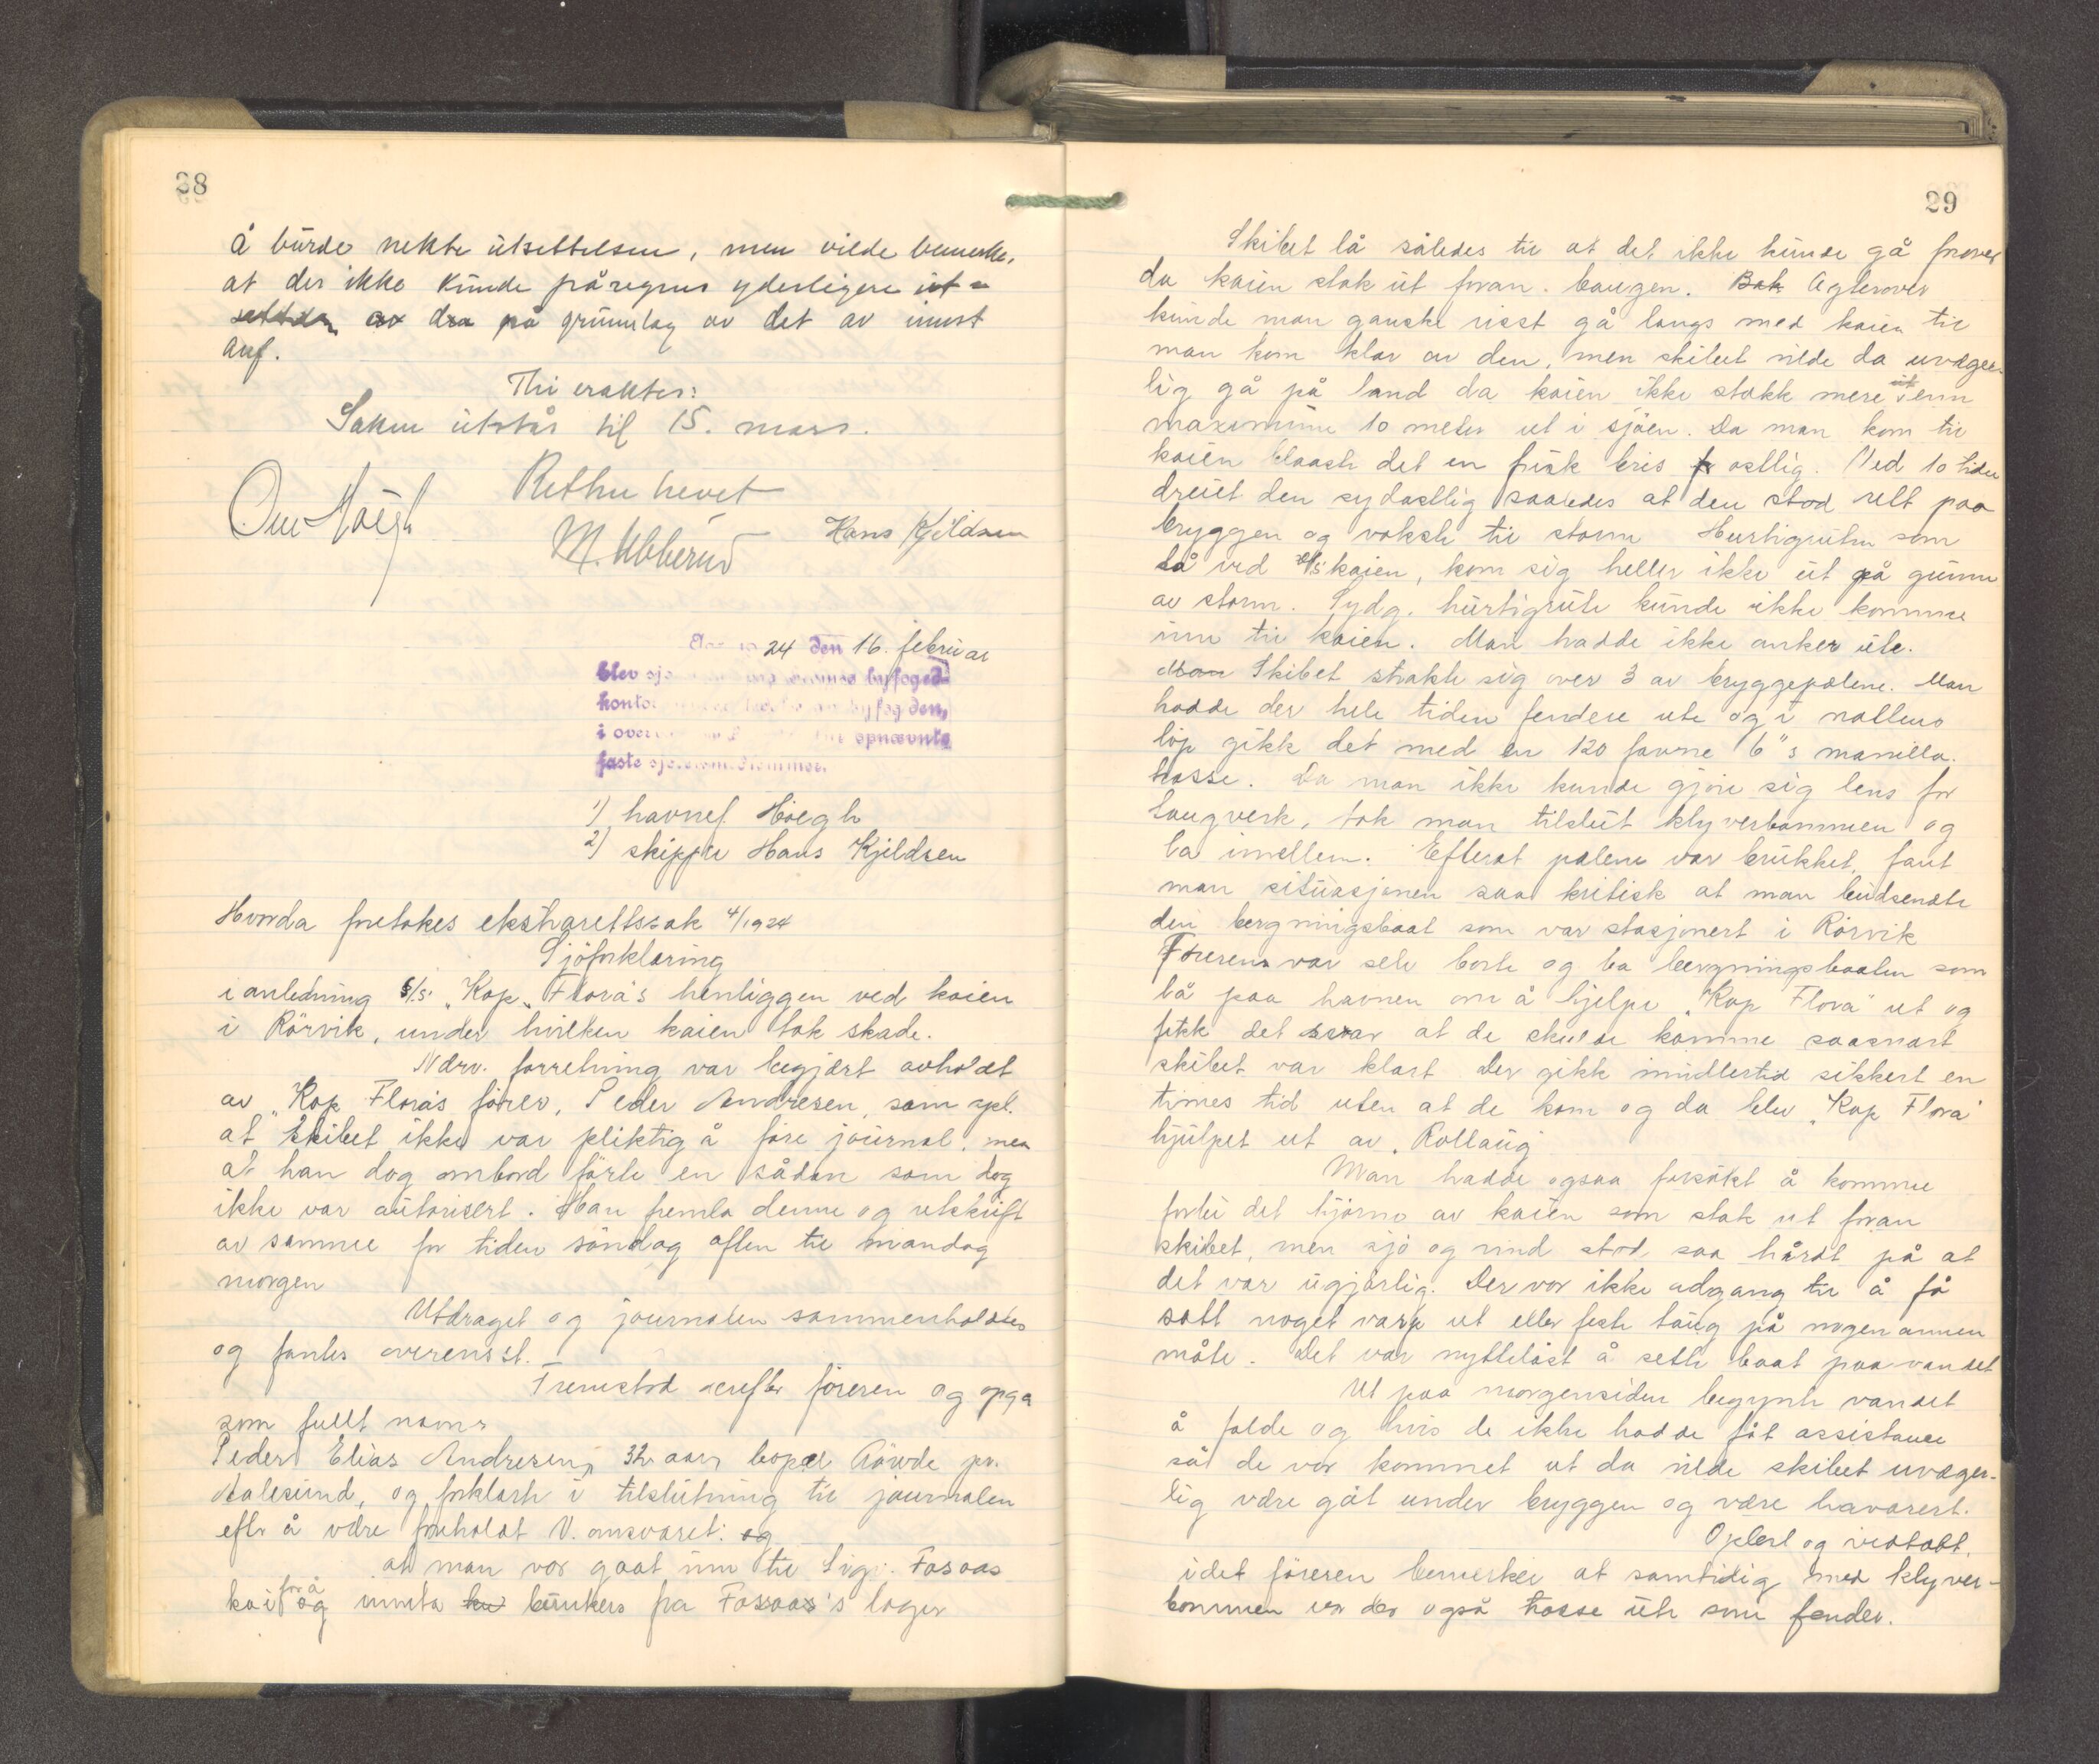 28
å burde nekte utsettelsen, men vilde bemerke,
at der ikke kunde påregnes yderligere ut-
settelser av dra på grunnlag av det av innst
anf.
Thi eraktes:
Saken utstår til 15. mars.
Retten hevet
Hans Kjeldsen
24 den 16. februar
blev byfoged-
konto byfogden,
i over opnævnte
faste
1) havnef. Höegh
2) skipper Hans Kjeldsen
Hvorda foretokes ekstrarettssak 4/1924
Sjöforklaring
i anledning S/S. "Kap Flora's henliggen ved kaien
i Rörvik, under hvilken kaien tok skade.
Nærv. forretning var begjært avholdt
av "Kap Flora's förer, Peder Andresen, som opl.
at skibet ikke var pliktig å före journal, men
at han dog ombord förte en sådan som dog
ikke var autorisert. Han fremla denne og utskrift
av samme for tiden söndag aften til mandag
morgen
Utdraget og journalen sammenholdtes
og fantes overensst.
Fremstod derefter föreren og opga
som fullt navn
Peder Elias Andresen, 32 aar, bopæl Rövde pr.
Aalesund, og forklarte i tilslutning til journalen
eftr å være foreholdt V. ansvaret: og
at man var gaat inn til Sig. Fosaas
kai og for å innta bunkers fra Fosaas's lager
29
Skibet lå således til at det ikke kunde gå forover
da kaien stak ut foran baugen. Bak Agterover
kunde man ganske visst gå langs med kaien til
man kom klar av den, men skibet vilde da uvæger-
lig gå på land da kaien ikke stakk mere ut enn
maximum 10 meter ut i sjöen. Da man kom til
kaien blaaste det en frisk bris ostlig. Ved 10 tiden
dreiet den sydostlig saaledes at den stod rett paa
bryggen og vokste til storm Hurtigruten som
lå ved D/S kaien, kom sig heller ikke ut på grunn
av storm. Sydg. hurtigrute kunde ikke komme
inn til kaien. Man hadde ikke anker ute.
Man Skibet strakte sig over 3 av bryggepælene. Man
hadde der hele tiden fendere ute og i nattens
löp gikk det med en 120 favne 6"s manilla
trosse. Da man ikke kunde gjöre sig lens for
taugverk, tok man tilslut klyverbommen og
la imellem. Efterat pælene var brukket, fant
man situasjonen saa kritisk at man budsendte
den bergningsbaat som var stasjonert i Rörvik
Föreren var selv borte og ba bergningsbaaten som
lå paa havnen om å hjelpe "Kap Flora" ut og
fikk det svar at de skulde komme saasnart
skibet var klart Der gikk imidlertid sikkert en
times tid uten at de kom og da blev "Kap Flora"
hjulpet ut av "Rollaug
Man hadde ogsaa forsökt å komme
forbi det hjörne av kaien som stak ut foran
skibet, men sjö og vind stod saa hårdt på at
det var ugjörlig. Der var ikke adgang til å få
satt noget varp ut eller feste taug på nogen annen
måte. Det var nytteløst å sette baat paa vandet
Ut paa morgensiden begynte vandet
å falde og hvis de ikke hadde fåt assistance
så de var kommet ut da vilde skibet uvæger-
lig være gåt under bryggen og være havarert.
Oplest og vedtatt.
idet föreren bemerker at samtidig med klyver-
bommen var der også trosse ute som fender.